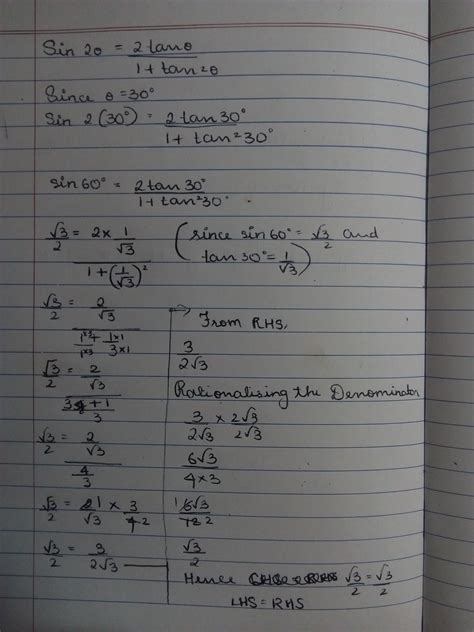 Sin 2θ = 2tanθ / 1 + tan²θ
Since θ = 30°
Sin 2(30°) = 2tan30° / 1 + tan²30°
sin60° = 2tan30° / 1 + tan²30°
√3/2 = 2 × 1/√3 / 1 + (1/√3)² (since sin60° = √3/2 and tan30° = 1/√3)
√3/2 = 2/√3 / 1×3/1×3 + 1×1/3×1
√3/2 = 2/√3 / 3 + 1/3
√3/2 = 2/√3 / 4/3
√3/2 = 2 1/√3 × 3/4 2
√3/2 = 3/2√3
→ From RHS,
3/2√3
Rationalising the Denominator
3/2√3 × 2√3/2√3
6√3/4×3
1 6√3/12 2
√3/2
Hence √3/2 = √3/2
LHS = RHS